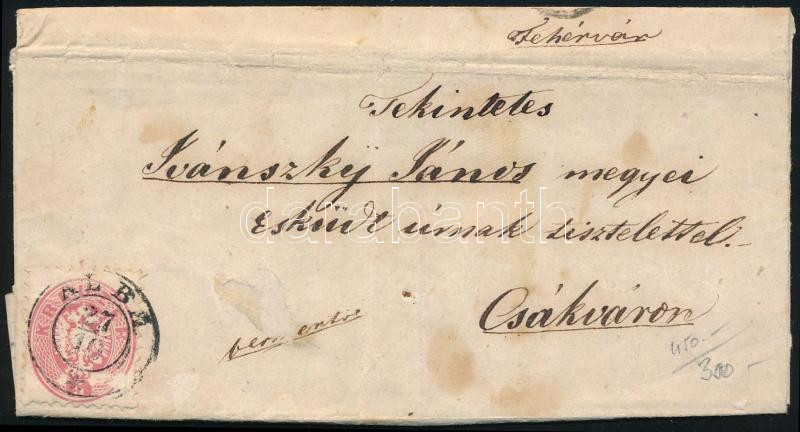 Fehérvár
Tekintetes
Ivánszkÿ János megyei
Esküdt úrnak tisztelettel.-
Csákváron
darabanth
ALBA
27
450.-
300-